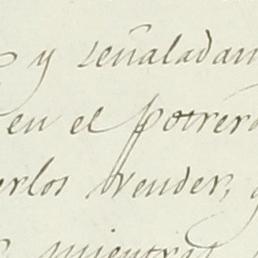 y señaladam
en el potrero
erlos vender, y
mientras